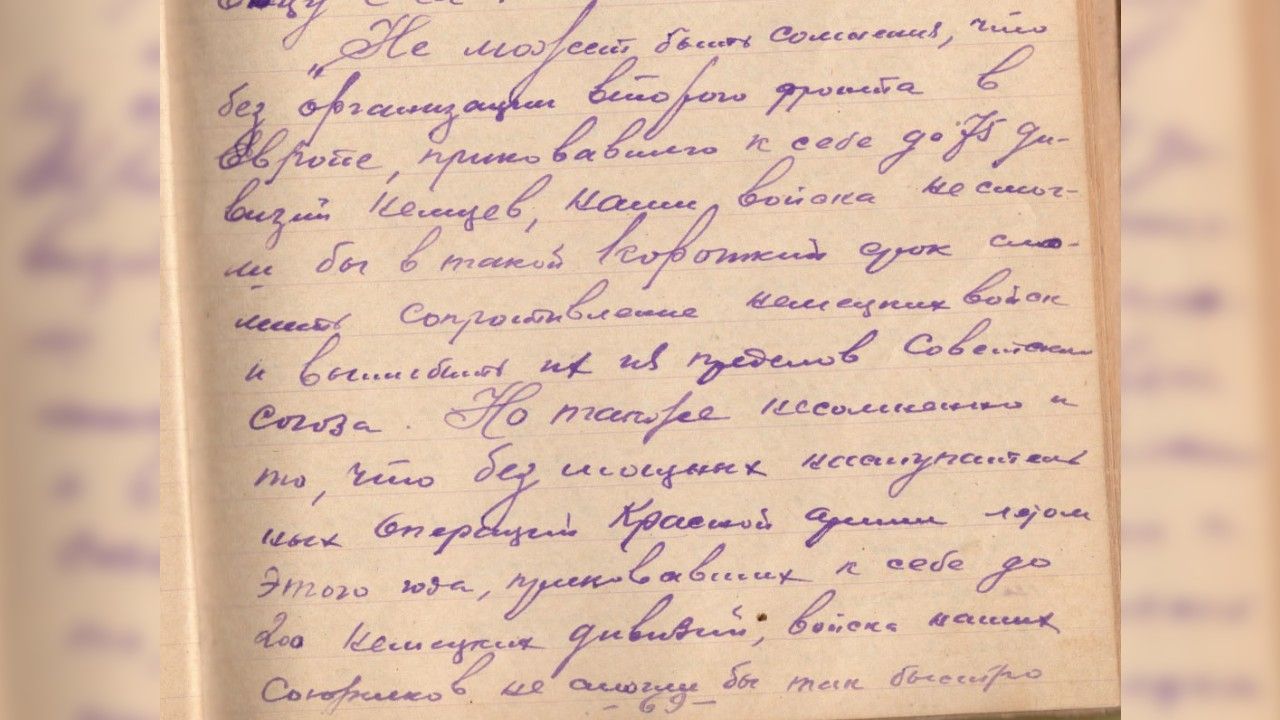 „Не может быть сомнения, что
без организации второго фронта в
Европе, приковавшего к себе до 75 ди-
визий немцев, наши войска не смог-
ли бы в такой короткий срок сло-
мить сопротивление немецких войск
и вышибить их из пределов Советского
Союза. Но также несомненно и
то, что без мощных наступатель
ных операций Красной армии летом
этого года, приковавших к себе до
200 немецких дивизий, войска наших
союзников не смогли бы так быстро
- 69 -